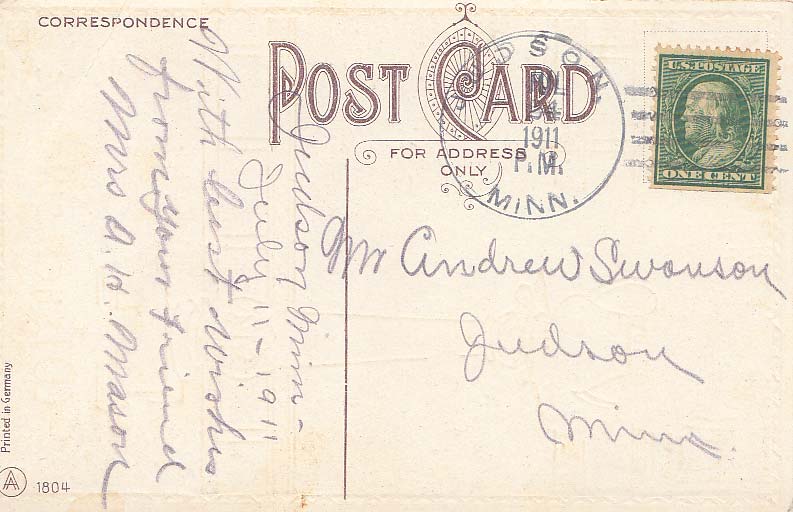 CORRESPONDENCE
POST CARD
FOR ADDRESS
ONLY
JUDSON,
JUL
24
1911
P.M.
MINN.
U.S. POSTAGE
ONE CENT
Judson Minn-
July 11-1911
With best Wishes
from your Friend
Mrs A. H. Mason
Mr Andrew Swanson
Judson
Minn.
Printed in Germany
1804